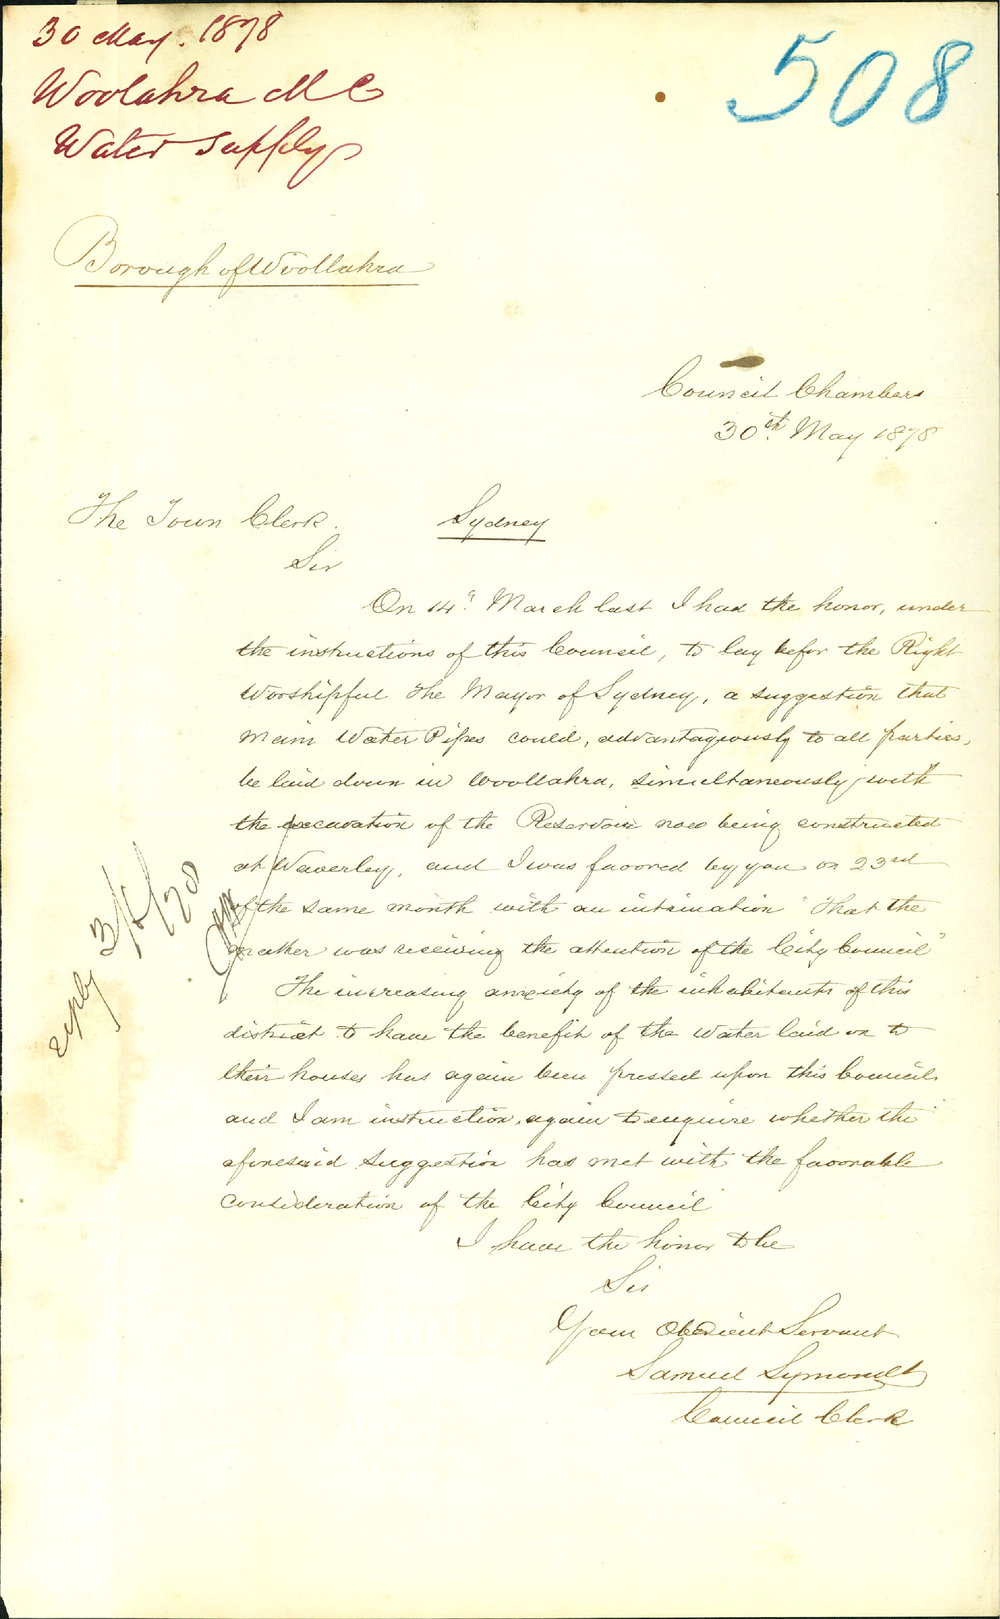 30 May. 1878
Woolahra M C
Water Supply
508
Borough of Woollahra
Council Chambers
30th May 1878
The Town Clerk.
Sydney
Sir
On 14" March last I had the honor, under
the instructions of this Council, to lay befor the Right
Worshipful the Mayor of Sydney, a suggestion that
Main Water Pipes could, advantageously to all parties,
be laid down in Woollahra, simultaneously with
the excavation of the Reservoir now being constructed
at Waverley, and I was favored by you on 23rd
of the same month with an intimation "That the
matter was receiving the attention of the City Council"
The increasing anxiety of the inhabitants of this
district to have the benefit of the water laid on to
their houses has again been pressed upon this Council
and I am instruction, again to enquire whether the
aforesaid suggestion has met with the favorable
consideration of the City Council
I have the honor to be
Sir
Your Obedient Servant
Samuel Symonds
Council Clerk
reply 3/6/78